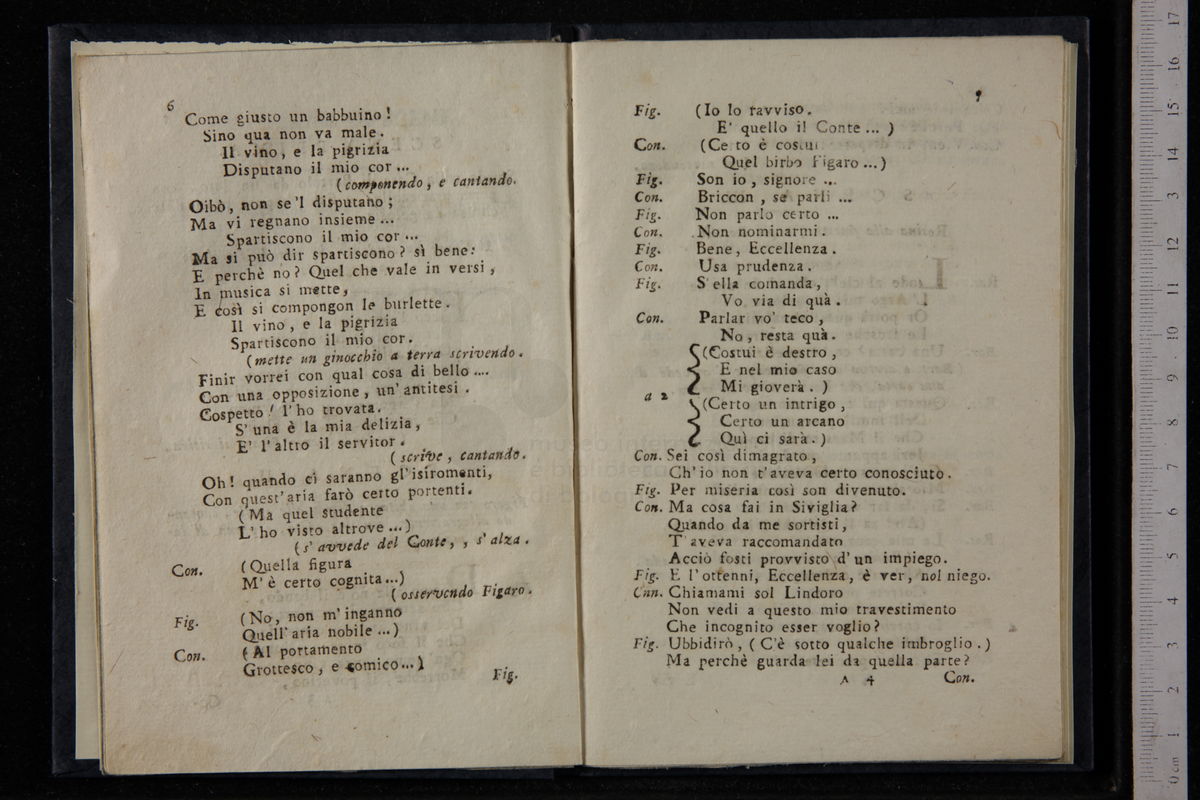 6
Come giusto un babbuino!
Sino qua non va male.
Il vino, e la pigrizia
Disputano il mio cor...
(componendo, e cantando.
Oibò, non se'l disputano;
Ma vi regnano insieme...
Spartiscono il mio cor...
Ma si può dir spartiscono? sì bene:
E perchè no? Quel che vale in versi,
In musica si mette,
E così si compongon le burlette.
Il vino, e la pigrizia
Spartiscono il mio cor.
(mette un ginocchio a terra scrivendo.
Finir vorrei con qual cosa di bello....
Con una opposizione, un'antitesi.
Cospetto! l'ho trovata.
S'una è la mia delizia,
E' l'altro il servitor.
(scrive, cantando.
Oh! quando ci saranno gl'istromenti,
Con quest'aria farò certo portenti.
(Ma quel studente
L'ho visto altrove...)
(s'avvede del Conte, , s'alza.
Con. (Quella figura
M'è certo cognita...)
(osservendo Figaro.
Fig. (No, non m'inganno
Quell'aria nobile...)
Con. (Al portamento
Grottesco, e comico...)
Fig.
Fig. (Io lo ravviso.
E' quello il Conte...)
Con. (Certo è costui
Quel birbo Figaro...)
Fig. Son io, signore...
Con. Briccon, se parli...
Fig. Non parlo certo...
Con. Non nominarmi.
Fig. Bene, Eccellenza.
Con. Usa prudenza.
Fig. S'ella comanda,
Vo via di quà.
Con. Parlar vo' teco,
No, resta quà.
(Costui è destro,
E nel mio caso
Mi gioverà.)
a 2
(Certo un intrigo,
Certo un arcano
Quì ci sarà.)
Con. Sei così dimagrato,
Ch'io non t'aveva certo conosciuto.
Fig. Per miseria così son divenuto.
Con. Ma cosa fai in Siviglia?
Quando da me sortisti,
T'aveva raccomandato
Acciò fosti provvisto d'un impiego.
Fig. E l'ottenni, Eccellenza, è ver, nol niego.
Cnn. Chiamami sol Lindoro
Non vedi a questo mio travestimento
Che incognito esser voglio?
Fig. Ubbidirò, (C'è sotto qualche imbroglio.)
Ma perchè guarda lei da quella parte?
A 4 Con.